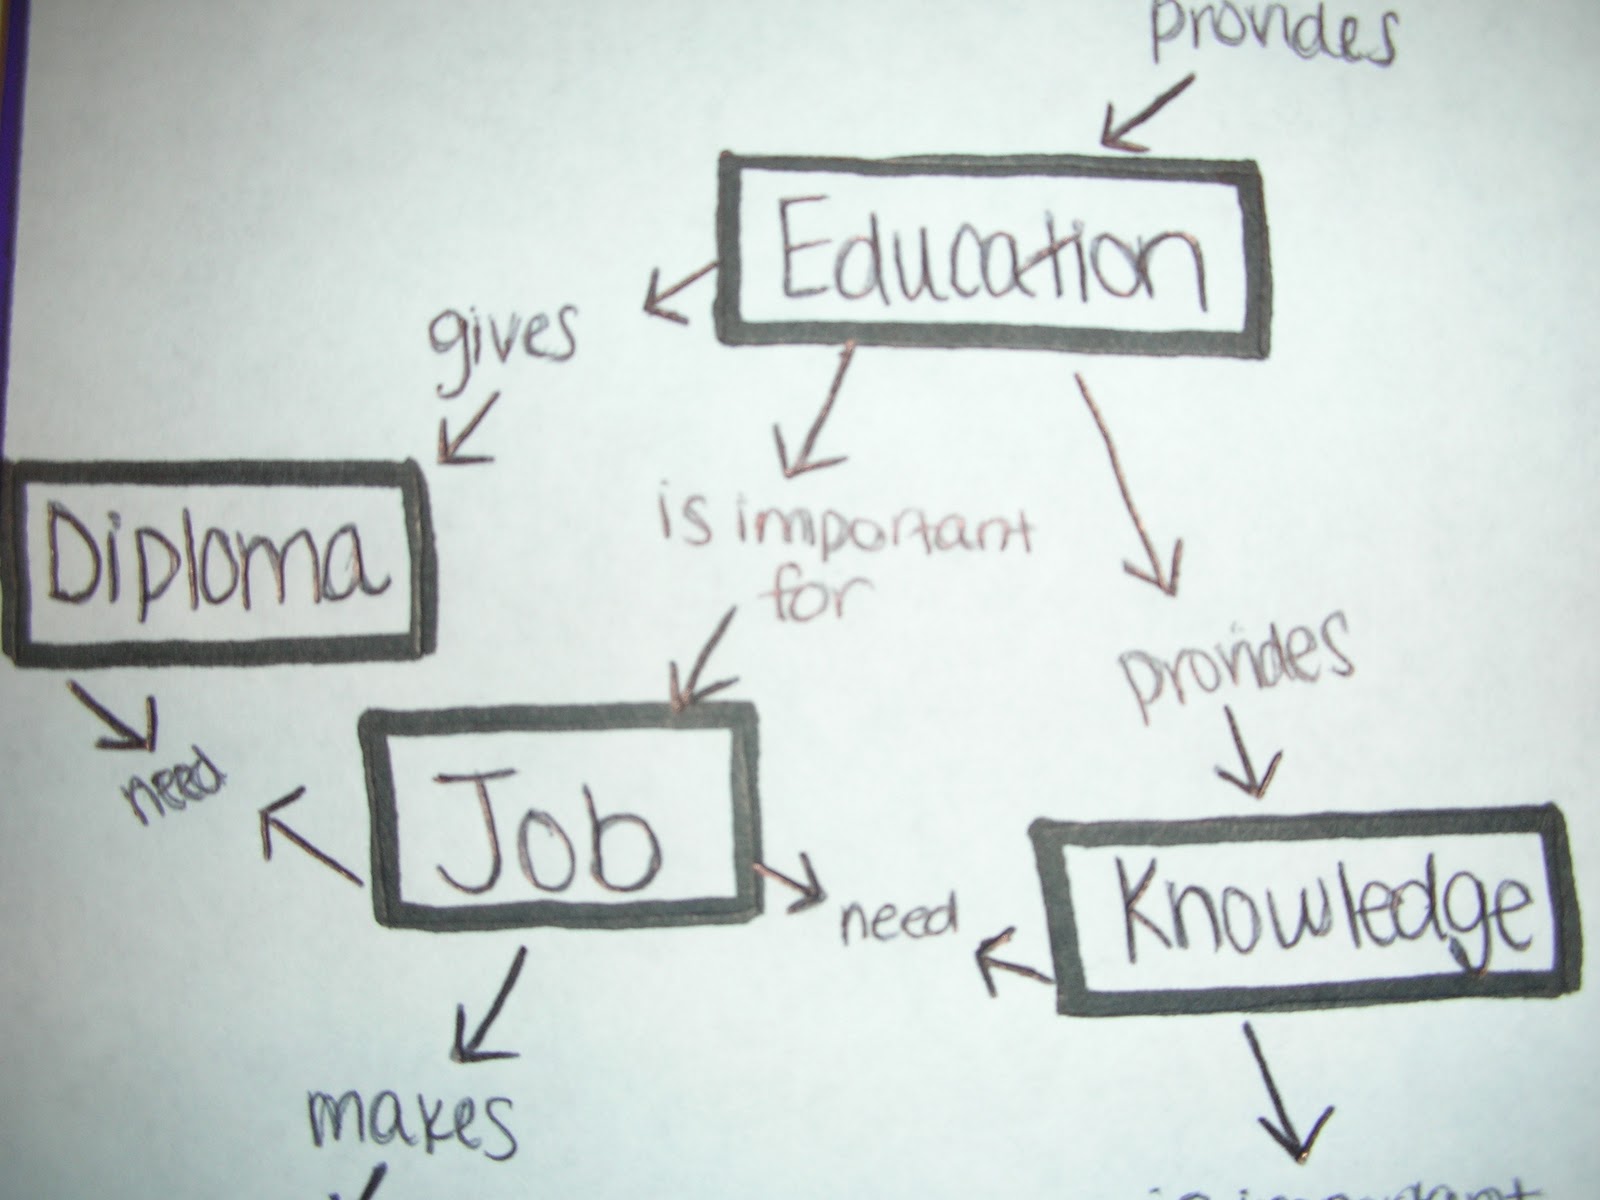 provides
Education
gives
is important
for
Diploma
provides
need
Job
need
Knowledge
makes
is important